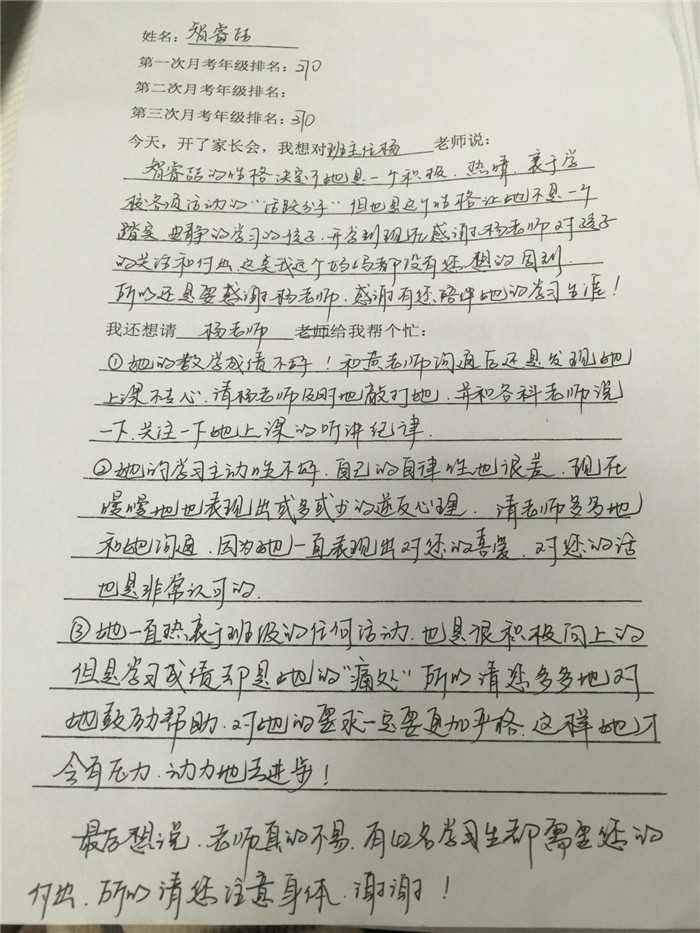 姓名：智睿喆
第一次月考年级排名：210
第二次月考年级排名：
第三次月考年级排名：310
今天，开了家长会，我想对班主任杨老师说：
智睿喆的性格决定了她是一个积极、热情、衷于学
校各项活动的“活跃分子”但也是这个性格让她不是一个
踏实、安静的学习的孩子。开学到现在感谢杨老师对孩子
的关注和付出，这是我这个妈妈都没有您想的周到，
所以还是要感谢杨老师，感谢有您陪伴她的学习生涯！
我还想请 杨老师 老师给我帮个忙：
①她的数学成绩不好！和黄老师沟通后还是发现她
上课不走心，请杨老师及时地敲打她，并和各科老师说
一下，关注一下她上课的听讲纪律。
②她的学习主动性不好，自己的自律性也很差，现在
慢慢地也表现出或多或少的逆反心理，请老师多多地
和她沟通，因为她一直表现出对您的喜爱，对您的话
也是非常认可的。
③她一直热衷于班级的任何活动，也是很积极向上的
但是学习成绩却是她的“痛处”所以请您多多地对
她鼓励帮助，对她的要求一定要更加严格，这样她才
会有压力、动力地去进步！
最后想说，老师真的不易，有42名学习生都需要您的
付出，所以请您注意身体，谢谢！